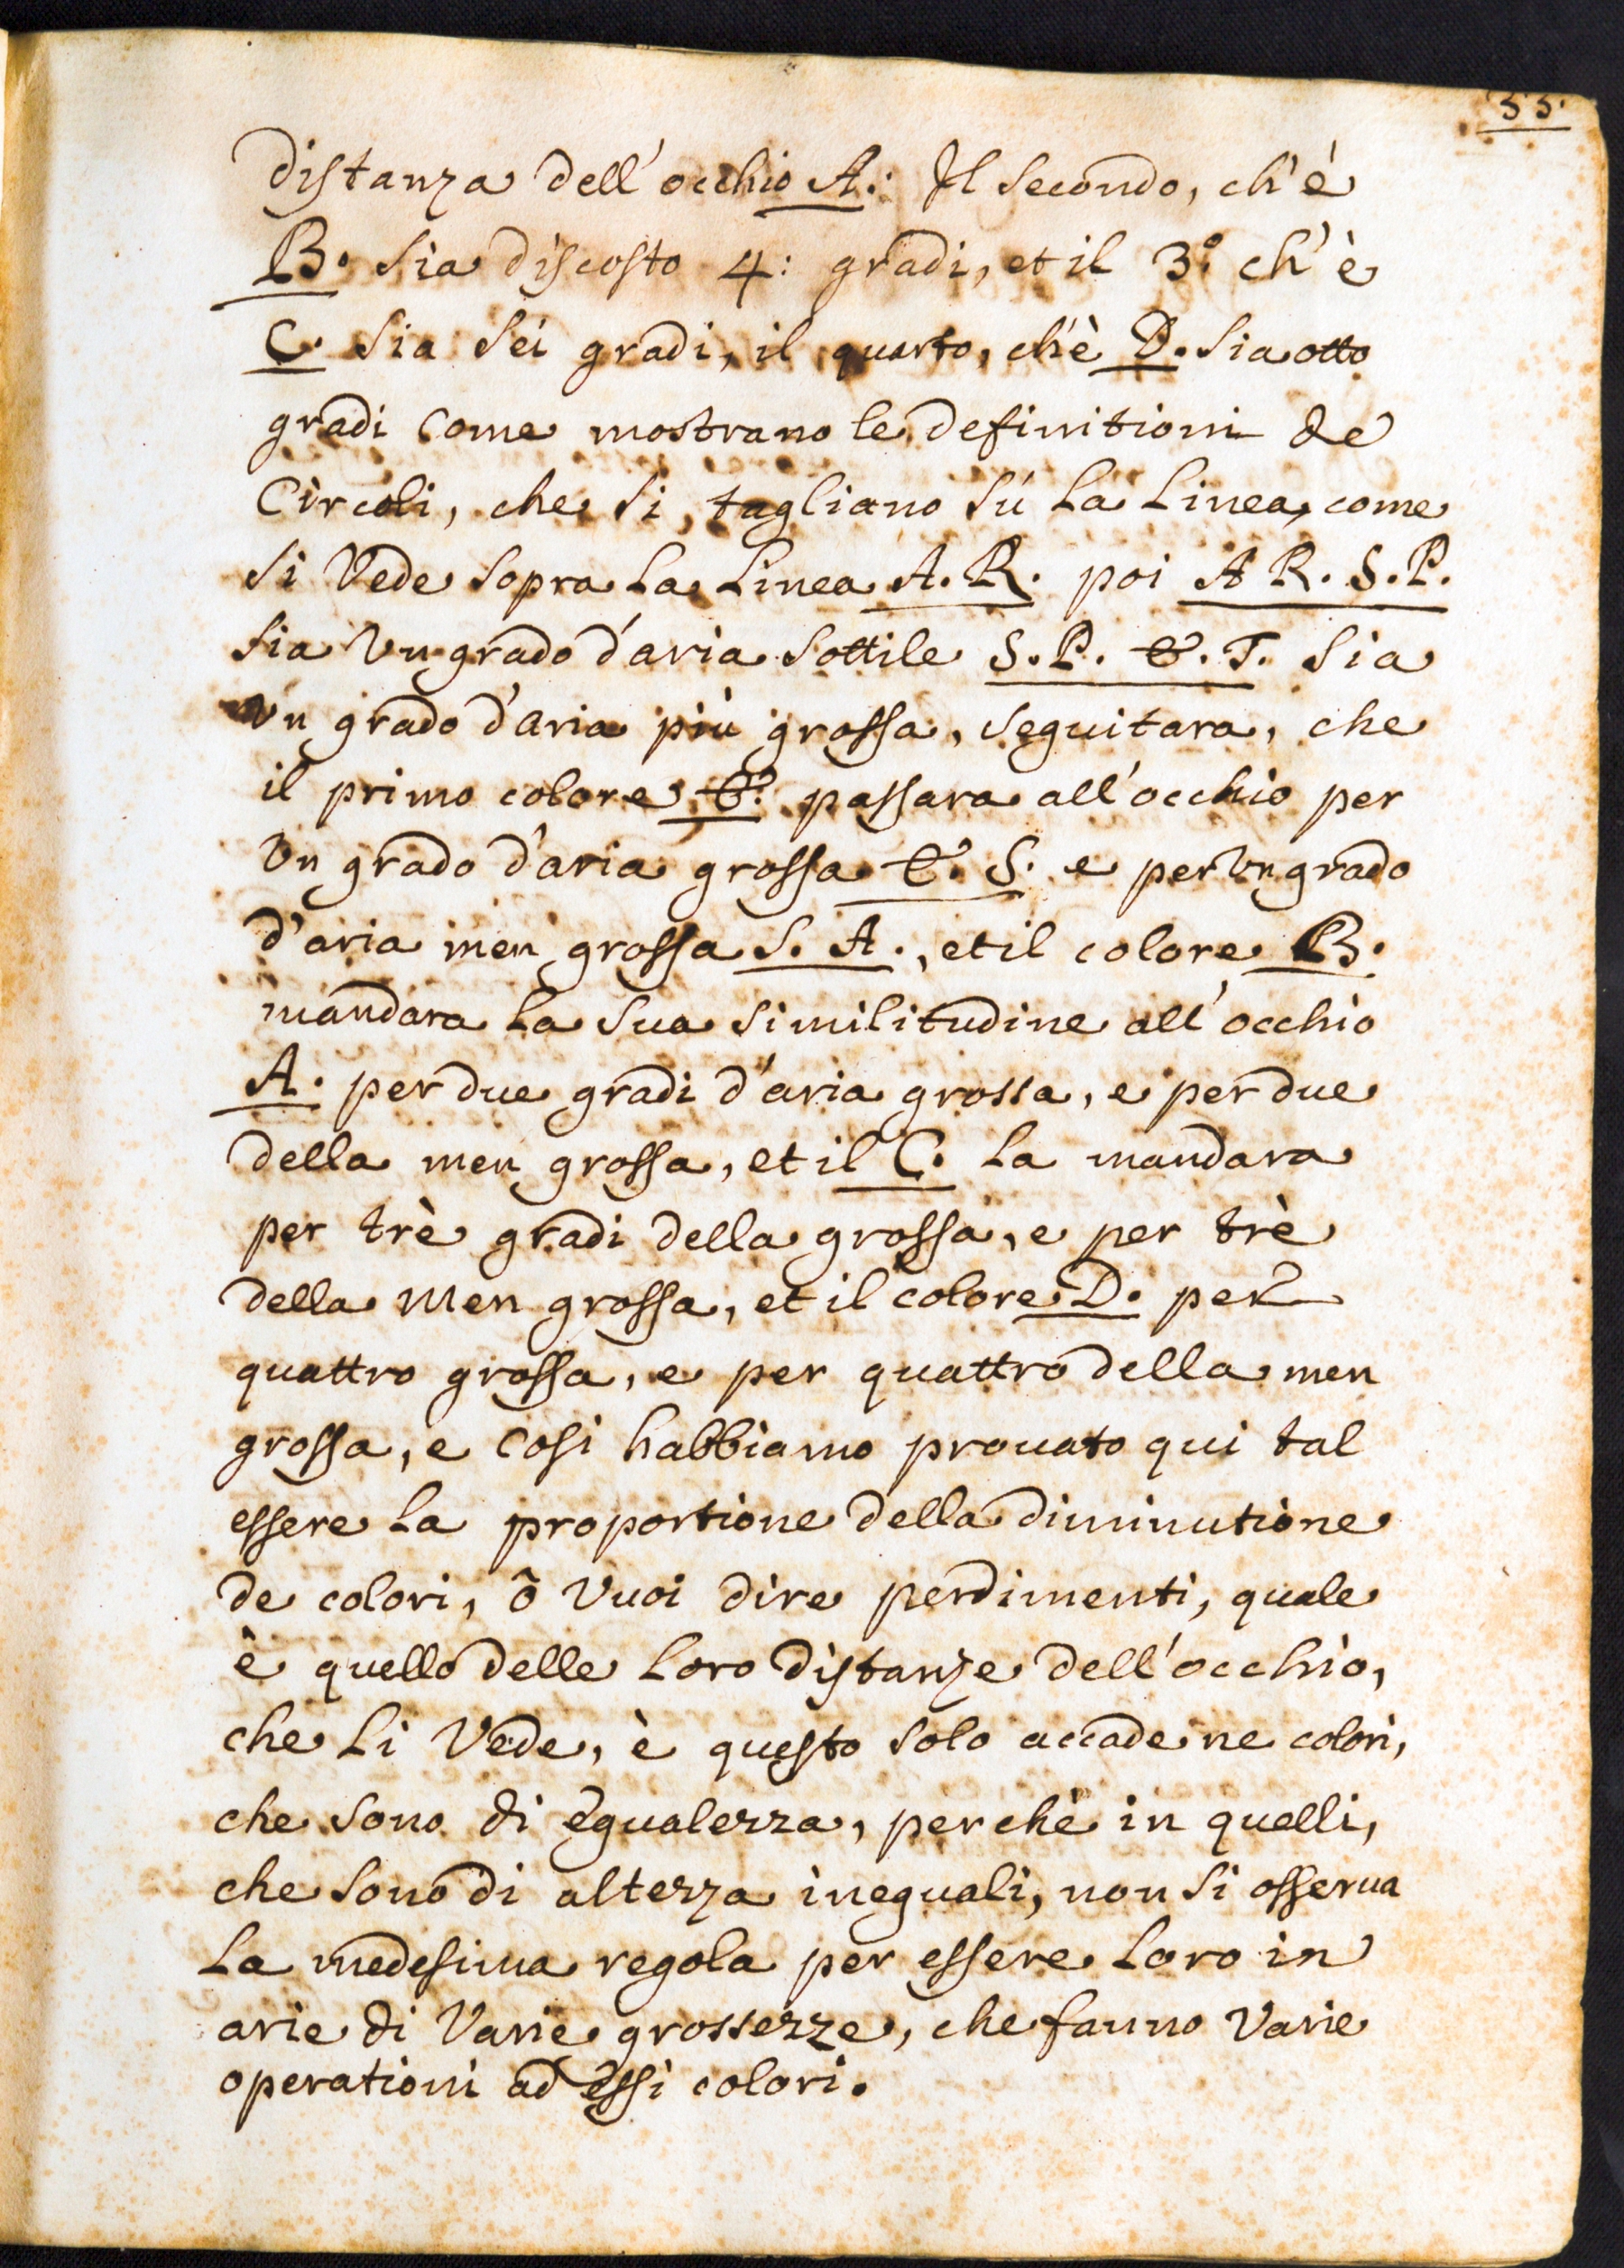 33.
distanza dell'occhio A.: Il secondo, ch'è
B. sia discosto 4: gradi, et il 3.º ch'è
C. sia sei gradi, il quarto, ch'è D. sia otto
gradi come mostrano le definitioni de
Circoli, che si tagliano sù la linea, come
si Vede sopra la linea A. R. poi A R. S. P.
sia Vn grado d'aria sottile S. P. &. T. sia
Vn grado d'aria più grossa, seguitara, che
il primo colore &. passara all'occhio per
Vn grado d'aria grossa &. S. e per Vn grado
d'aria men grossa S. A., et il colore B.
mandara la sua similitudine all'occhio
A. per due gradi d'aria grossa, e per due
della men grossa, et il C. la mandara
per trè gradi della grossa, e per trè
della men grossa, et il colore D. per
quattro grossa, e per quattro della men
grossa, e cosi habbiamo prouato qui tal
essere la proportione della diminutione
de colori, ò Vuoi dire perdimenti, quale
è quello delle loro distanze dell'occhio,
che li Vede, è questo solo accade ne colori,
che sono di egualezza, perchè in quelli,
che sono di altezza ineguali, non si osserua
la medesima regola per essere loro in
arie di Varie grossezze, che fanno Varie
operationi ad essi colori.